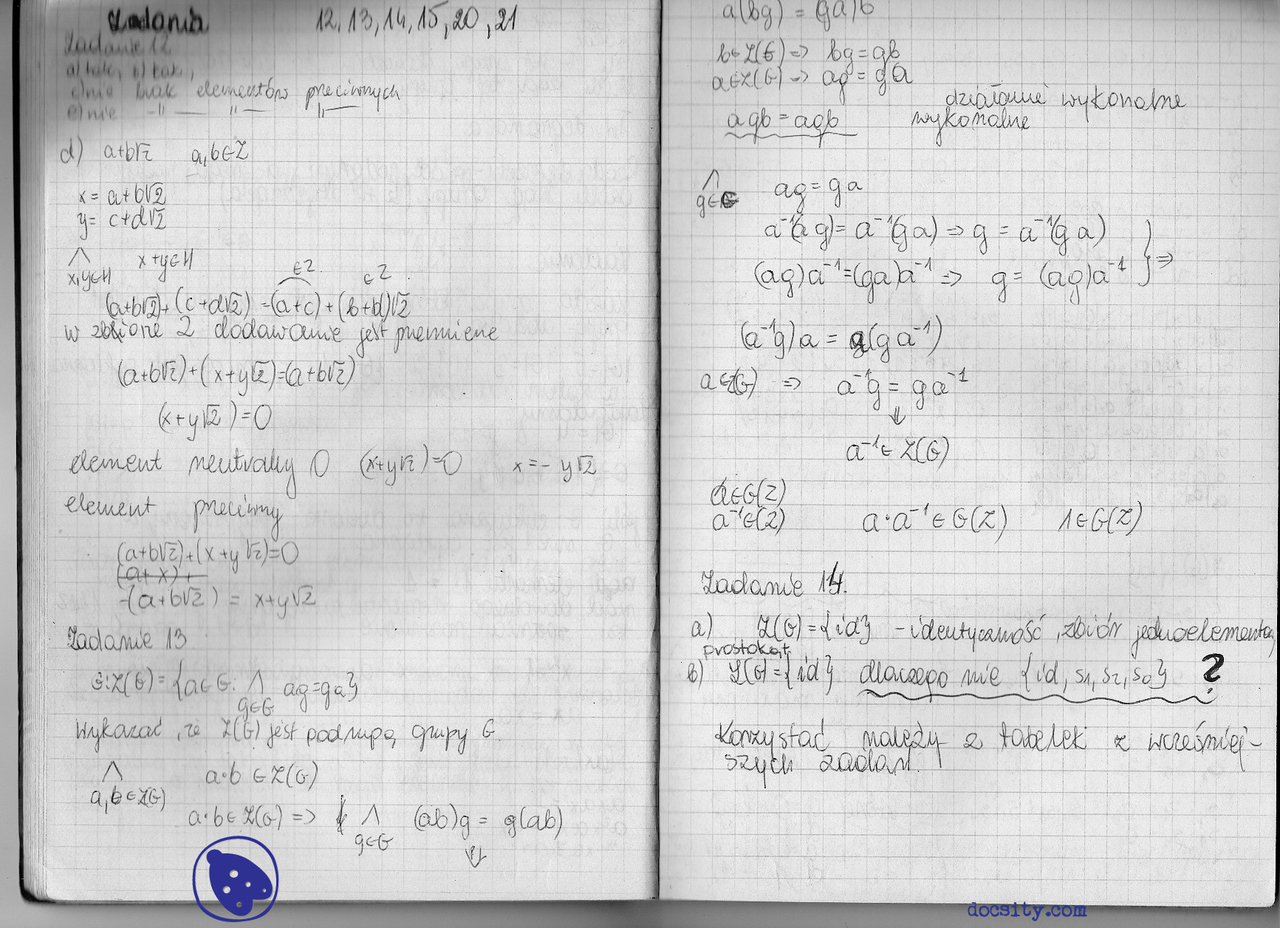 Zadania 12, 13, 14, 15, 20, 21
Zadanie 12
a) tak, b) tak,
c) nie brak elementów przeciwnych
e) nie -"- -"- -"-
d) a+b√2 a,b∈Z
x = a+b√2
y = c+d√2
⋀ x+y∈H
x,y∈H
∈Z ∈Z
(a+b√2)+(c+d√2) = (a+c)+(b+d)√2
w zbiorze Z dodawanie jest przemienne
(a+b√2)+(x+y√2)=(a+b√2)
(x+y√2)=0
element neutralny 0 (x+y√2)=0 x=-y√2
element przeciwny
(a+b√2)+(x+y√2)=0
(a+x)+
-(a+b√2) = x+y√2
Zadanie 13
Z(G) = {a∈G: ⋀ ag=ga}
g∈G
Wykazać, że Z(G) jest podgrupą grupy G.
⋀ a·b ∈ Z(G)
a,b∈Z(G)
a·b∈Z(G) => ⋀ (ab)g = g(ab)
g∈G
⇓
a(bg) = (ga)b
b∈Z(G) => bg=gb
a∈Z(G) => ag=ga
działanie wykonalne
agb = agb wykonalne
⋀ ag = ga
g∈G
a⁻¹(ag) = a⁻¹(ga) => g = a⁻¹(ga)
(ag)a⁻¹=(ga)a⁻¹ => g = (ag)a⁻¹ } =>
(a⁻¹g)a = a(ga⁻¹)
a∈Z(G) => a⁻¹g = ga⁻¹
⇓
a⁻¹∈ Z(G)
a∈G(Z)
a⁻¹∈(Z) a·a⁻¹∈G(Z) 1∈G(Z)
Zadanie 14.
a) Z(G)={id} - identyczność, zbiór jednoelementowy
prostokąt
b) Z(G)={id} dlaczego nie {id, s₁, s₂, s₀} ?
Korzystać należy z tabelek z wcześniej-
szych zadań.
docsity.com